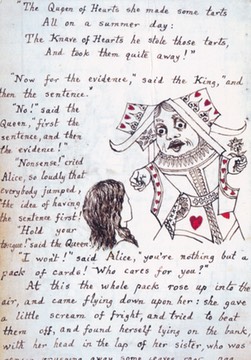 "The Queen of Hearts she made some tarts
All on a summer day:
The Knave of Hearts he stole those tarts,
And took them quite away!"
"Now for the evidence," said the King, "and
then the sentence."
"No!" said the
Queen, "first the
sentence, and then
the evidence!"
"Nonsense!" cried
Alice, so loudly that
everybody jumped,
"the idea of having
the sentence first!
"Hold your
tongue!" said the Queen.
"I won't!" said Alice, "you're nothing but a
pack of cards! Who cares for you?"
At this the whole pack rose up into the
air, and came flying down upon her: she gave
a little scream of fright, and tried to beat
them off, and found herself lying on the bank,
with her head in the lap of her sister, who was
away some